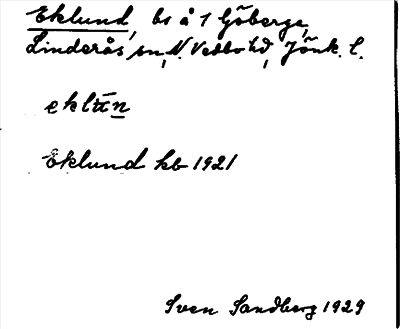 Eklund, bs å 1 Göberga,
Linderås sn, N. Vedbo hd, Jönk. l.
eklu̅n
Eklund kb 1921
Sven Sandberg 1929